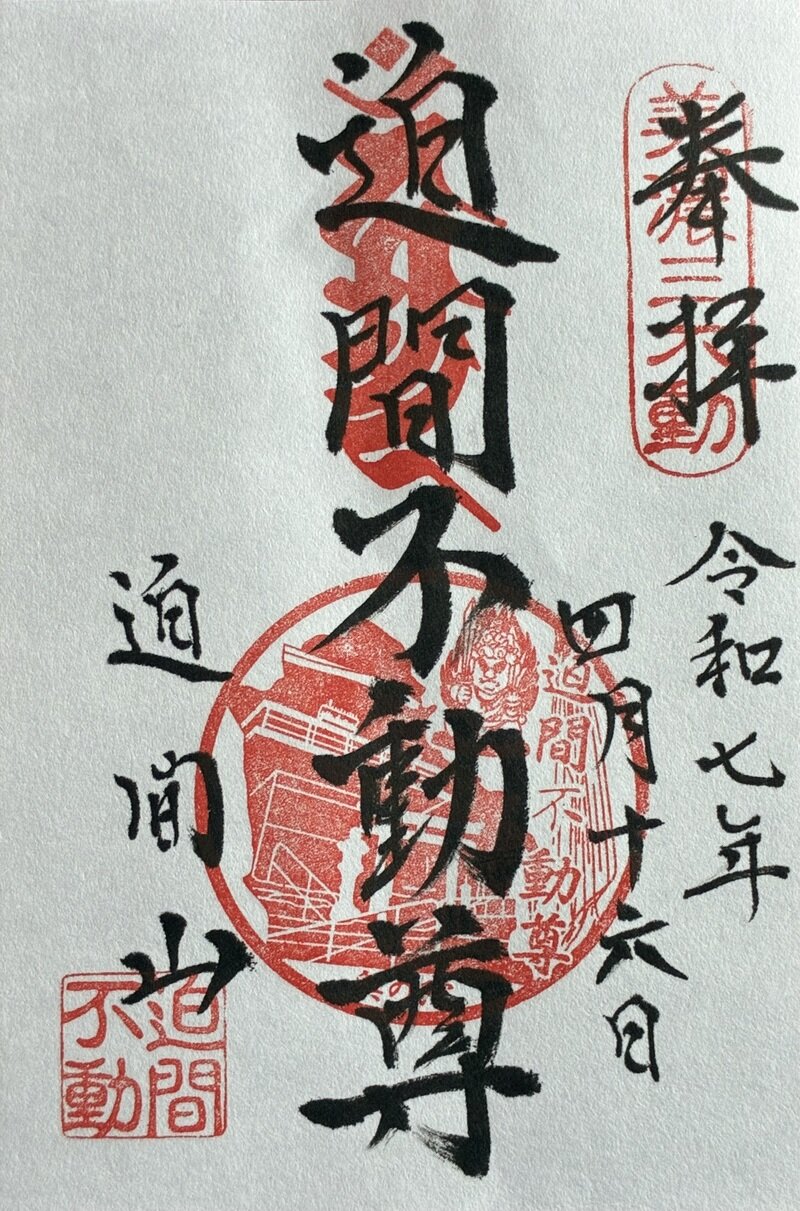 奉拝
美濃三不動
令和七年
四月十六日
迫間不動尊
迫間不動尊
迫間山
迫間
不動